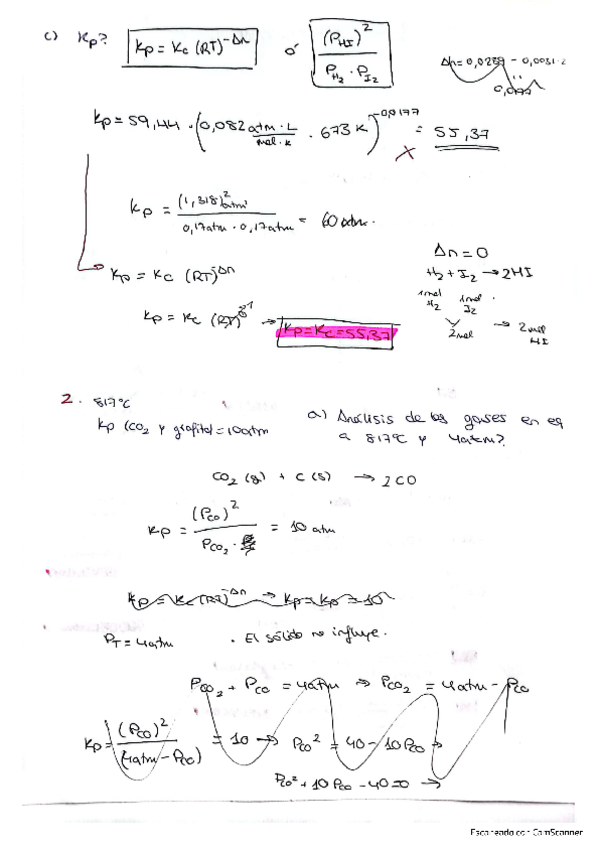 c) Kp?  Kp = Kc (RT)^-Δn  ó  (P_HI)² / P_H2 · P_I2
Δn = 0,0259 - 0,0031·2
Kp = 59,44 · (0,082 atm·L / mol·K · 673 K)^-0,0177 = 55,37
Kp = (1,318)² atm² / 0,17atm · 0,17atm = 60 atm.
Δn = 0
Kp = Kc (RT)^-Δn
H2 + I2 → 2HI
1mol H2  1mol I2
2mol → 2mol HI
Kp = Kc (RT)^0 → Kp = Kc = 55,37
2. 817°C
Kp (CO2 y grafito) = 10atm
a) Análisis de los gases en eq
a 817°C y 4atm?
CO2 (g) + C (s) → 2CO
Kp = (P_CO)² / P_CO2 · = 10 atm
Kp = Kc (RT)^-Δn → Kp = Kp = 10
P_T = 4atm  · El sólido no influye.
P_CO2 + P_CO = 4atm ⇒ P_CO2 = 4atm - P_CO
Kp = (P_CO)² / (4atm - P_CO) = 10 → P_CO² = 40 - 10P_CO ⇒
P_CO² + 10 P_CO - 40 = 0 →
Escaneado con CamScanner